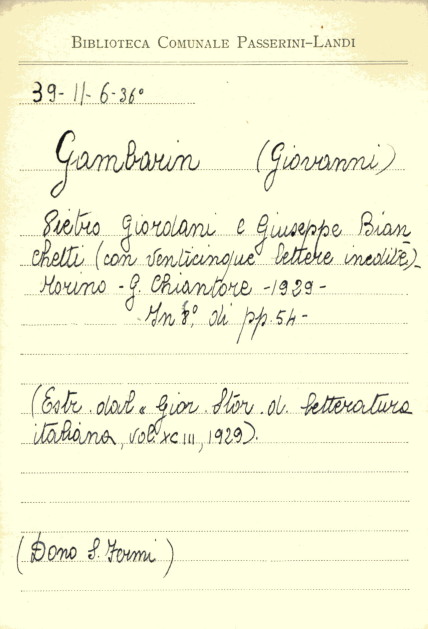 BIBLIOTECA COMUNALE PASSERINI-LANDI
39-11-6-36°
Gambarin (Giovanni)
Pietro Giordani e Giuseppe Bian
chetti (con venticinque lettere inedite)-
Torino - G. Chiantore - 1929 -
- In 8°, di pp. 54 -
(Estr. dal « Gior. Stor. d. letteratura
italiana, vol. XCIII, 1929).
(Dono S. Fermi)